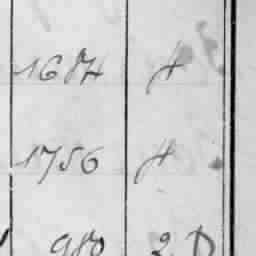 1684 H
1756 H
980 2 D